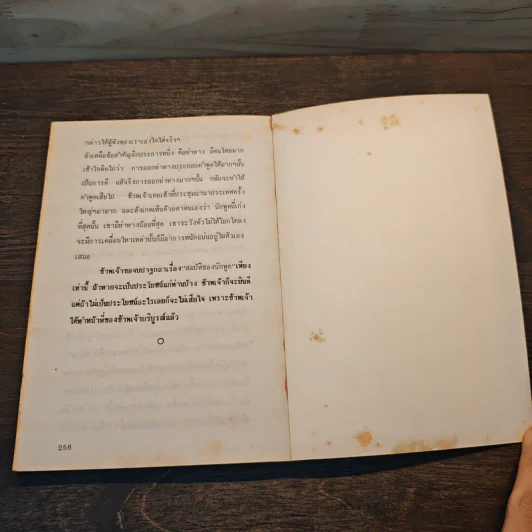 กล่าวให้ผู้ฟังของเราเอาใจใส่จริงๆ
ยังเหลือข้อสำคัญอีกประการหนึ่ง คือท่าทาง มีคนโดยมาก
เข้าใจผิดไปว่า การออกท่าทางประกอบคำพูดให้มากๆนั้น
เป็นการดี แต่จริงการออกท่าทางมากๆนั้น กลับจะทำให้
คำพูดเสียไป ข้าพเจ้าเคยเข้าที่ประชุมนานาประเทศครั้ง
ใหญ่ๆมามาก และสังเกตเห็นด้วยตาตนเองว่า นักพูดที่เก่ง
ที่สุดนั้น เขามีท่าทางน้อยที่สุด เขาระวังตัวไม่ให้โยกโคลง
จะมีการเคลื่อนไหวเหล่านั้นก็มีอาการหนักแน่นอยู่ในตัวเอง
เสมอ
ข้าพเจ้าขอจบปาฐกถาเรื่อง"สมบัติของนักพูด"เพียง
เท่านี้ ถ้าหากจะเป็นประโยชน์แก่ท่านบ้าง ข้าพเจ้าก็จะยินดี
แต่ถ้าไม่เป็นประโยชน์อะไรเลยก็จะไม่เสียใจ เพราะข้าพเจ้า
ได้ทำหน้าที่ของข้าพเจ้าบริบูรณ์แล้ว
256